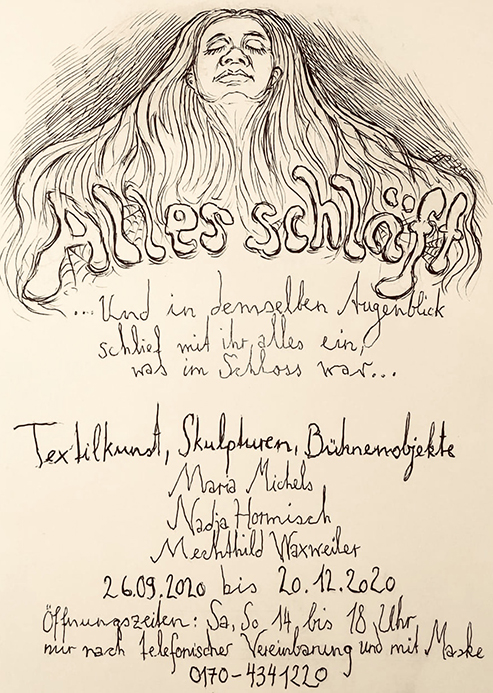 Alles schläft
...Und in demselben Augenblick
schlief mit ihr alles ein,
was im Schloss war...
Textilkunst, Skulpturen, Bühnenobjekte
Maria Michels
Nadja Hormisch
Mechthild Waxweiler
26.09.2020 bis 20.12.2020
Öffnungszeiten: Sa, So 14, bis 18 Uhr,
nur nach telefonischer Vereinbarung und mit Maske
0170-4341220